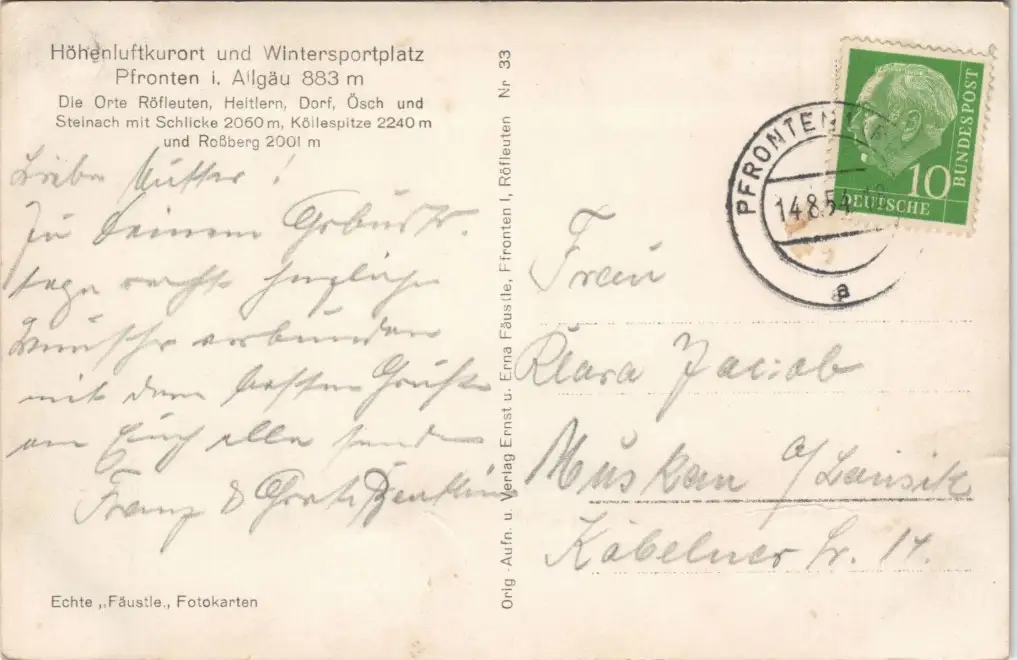 Höhenluftkurort und Wintersportplatz
Pfronten i. Allgäu 883 m
Die Orte Röfleuten, Heitlern, Dorf, Ösch und
Steinach mit Schlicke 2060 m, Köllespitze 2240 m
und Roßberg 2001 m
Liebe Mutter!
Zu Deinem Geburts-
tage recht herzliche
Wünsche verbunden
mit den besten Grüßen
an Euch alle senden
Franz & Greti
Echte „Fäustle„ Fotokarten
Orig.-Aufn. u. Verlag Ernst u. Erna Fäustle, Pfronten I, Röfleuten Nr 33
PFRONTEN
14.8.54
a
10
DEUTSCHE
BUNDESPOST
Frau
Klara Jacob
Muskau a/Lausik
Köbelner Str. 14.